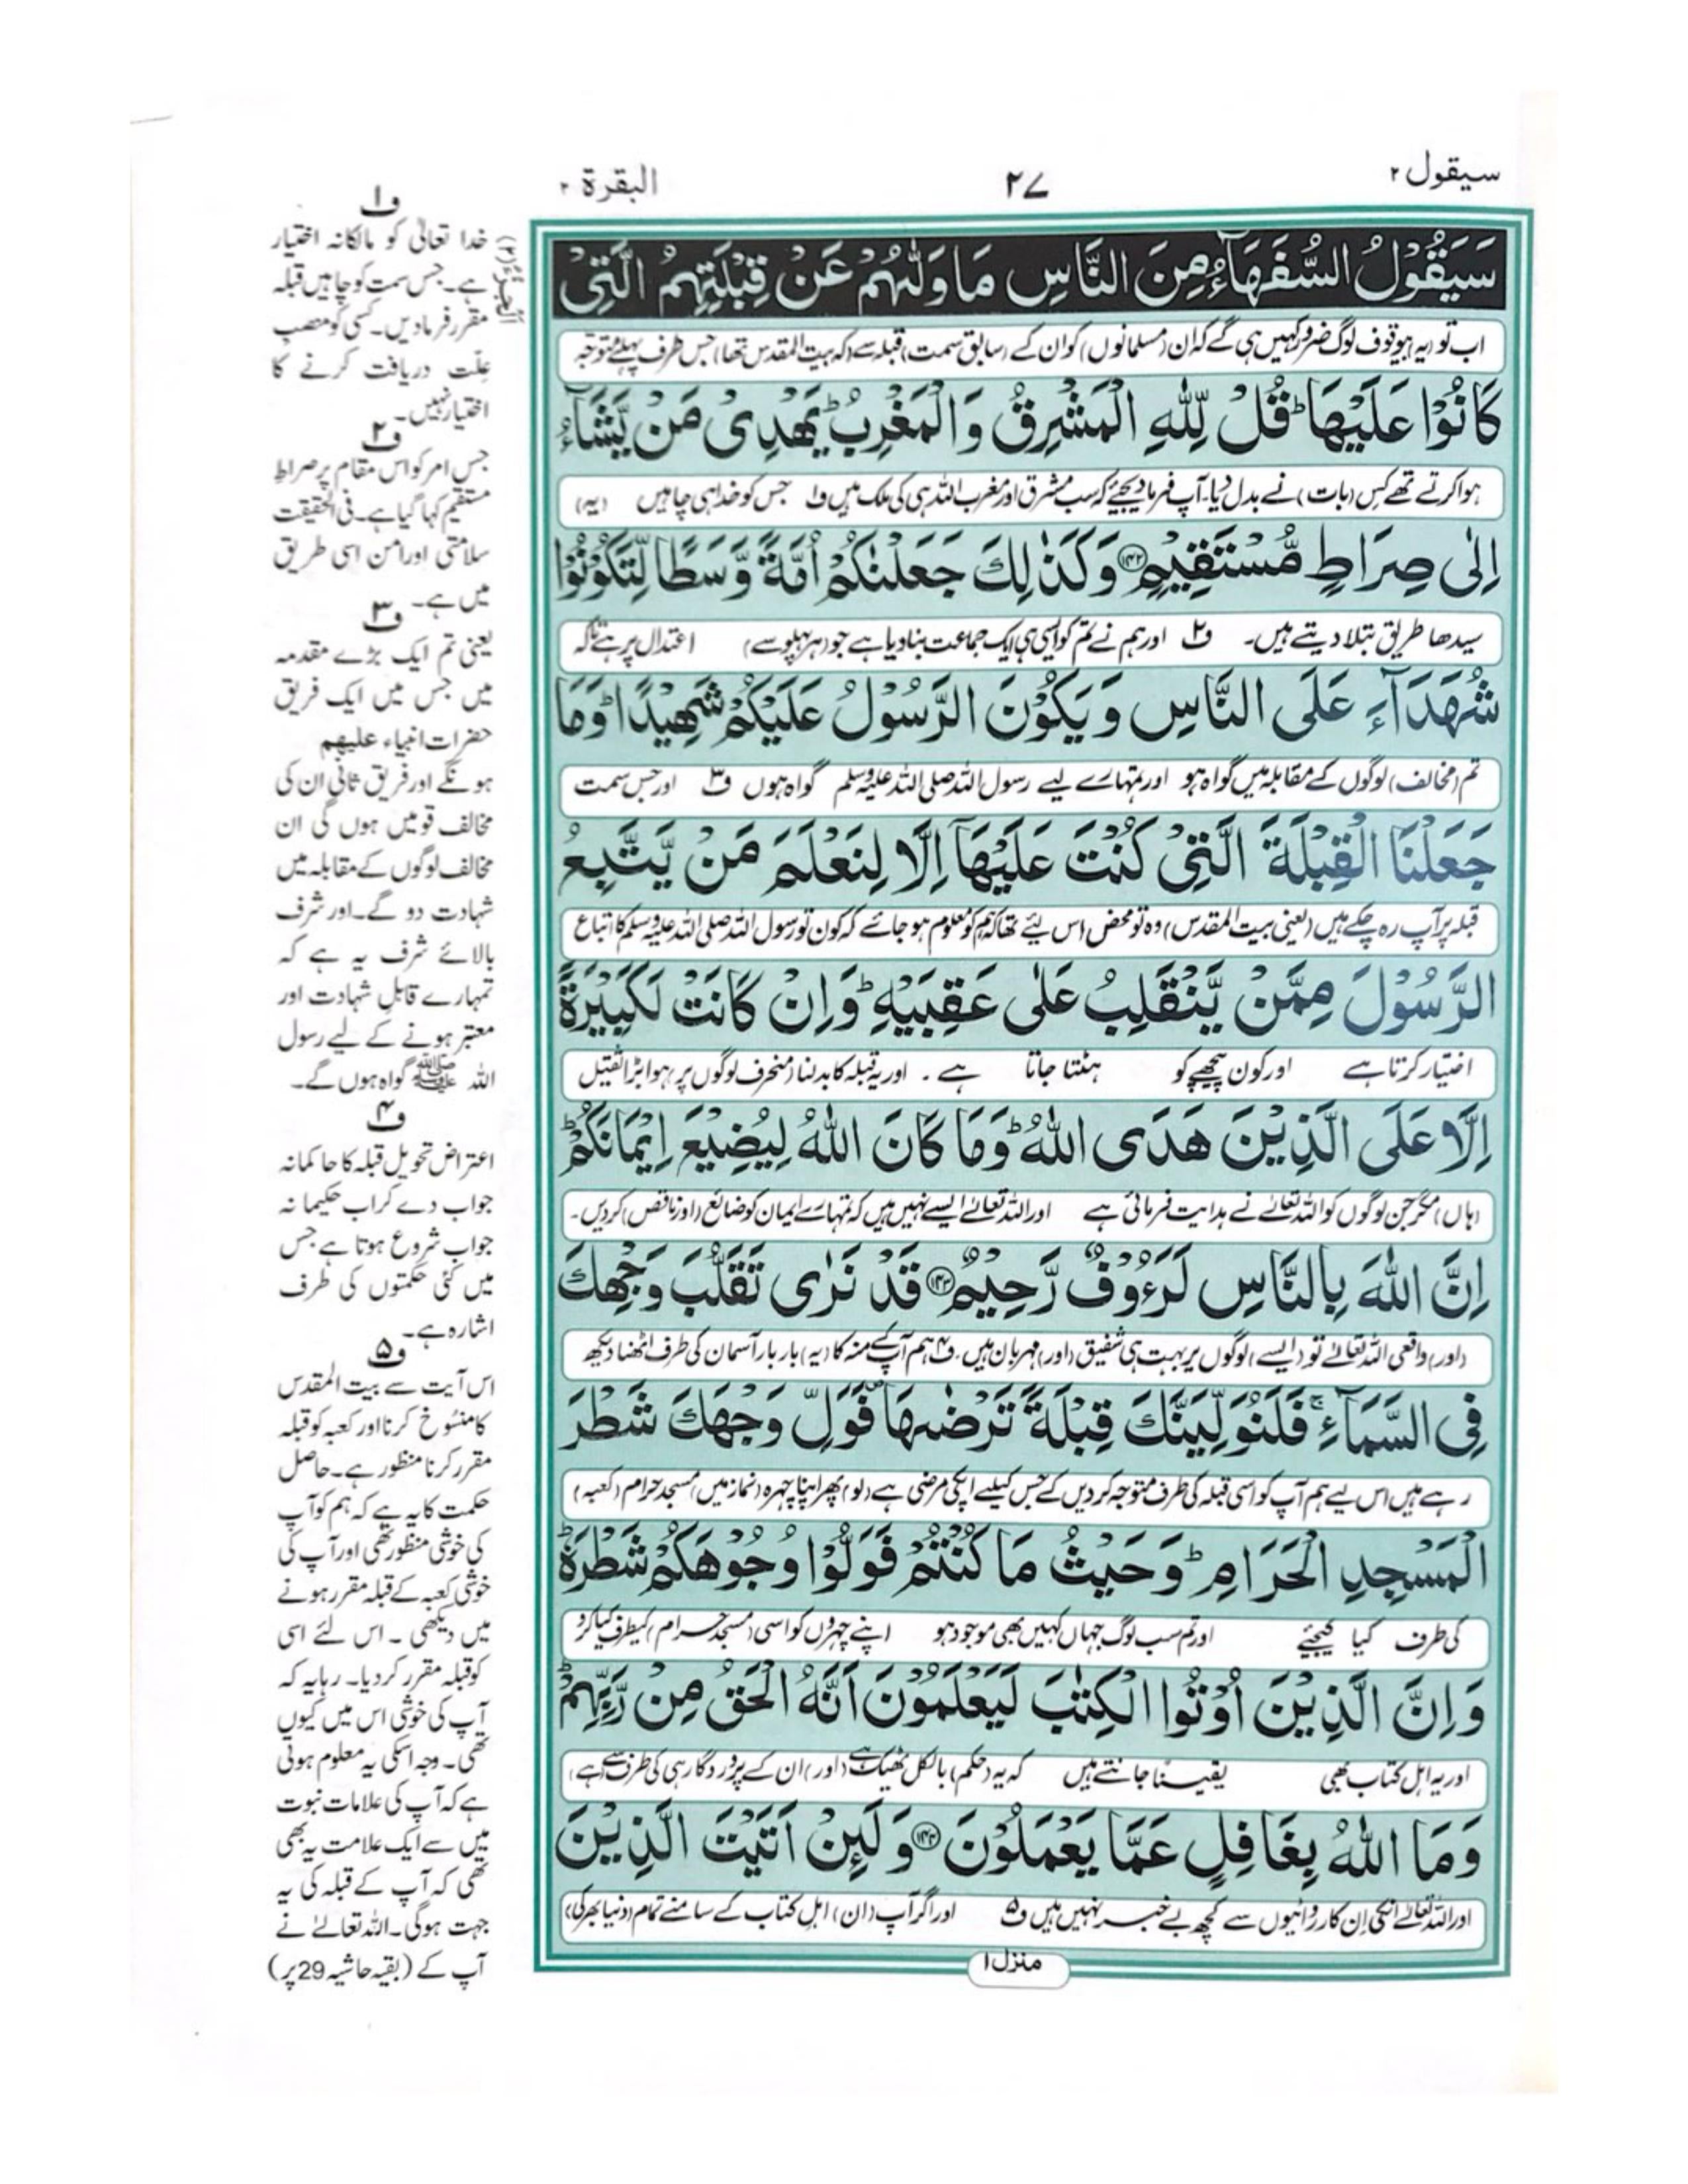 سیقول ۲
۲۷
البقرة ۲
سَيَقُوۡلُ السُّفَهَآءُ مِنَ النَّاسِ مَا وَلّٰىهُمۡ عَنۡ قِبۡلَتِهِمُ الَّتِىۡ
اب تو (یہ) بیوقوف لوگ ضرور کہیں ہی گے کہ ان (مسلمانوں) کو ان کے (سابق سمت) قبلہ سے (کہ بیت المقدس تھا) جس طرف پہلے متوجہ
كَانُوۡا عَلَيۡهَا ؕ قُلۡ لِّلّٰهِ الۡمَشۡرِقُ وَالۡمَغۡرِبُ ؕ يَهۡدِىۡ مَنۡ يَّشَآءُ
ہوا کرتے تھے کس (بات) نے بدل دیا۔ آپ فرما دیجئے کہ سب مشرق اور مغرب اللہ ہی کی ملک ہیں ف۱ جس کو خدا ہی چاہیں (یہ)
اِلٰى صِرَاطٍ مُّسۡتَقِيۡمٍ ﴿۱۴۲﴾ وَكَذٰلِكَ جَعَلۡنٰكُمۡ اُمَّةً وَّسَطًا لِّتَكُوۡنُوۡا
سیدھا طریق بتلا دیتے ہیں۔ ف۲ اور ہم نے تم کو ایسی ہی ایک جماعت بنا دیا ہے جو (ہر پہلو سے) اعتدال پر ہے تاکہ
شُهَدَآءَ عَلَى النَّاسِ وَيَكُوۡنَ الرَّسُوۡلُ عَلَيۡكُمۡ شَهِيۡدًا ؕ وَمَا
تم (مخالف) لوگوں کے مقابلہ میں گواہ ہو اور تمہارے لیے رسول اللہ صلی اللہ علیہ وسلم گواہ ہوں ف۳ اور جس سمت
جَعَلۡنَا الۡقِبۡلَةَ الَّتِىۡ كُنۡتَ عَلَيۡهَآ اِلَّا لِنَعۡلَمَ مَنۡ يَّتَّبِعُ
قبلہ پر آپ رہ چکے ہیں (یعنی بیت المقدس) وہ تو محض اس لیے تھا کہ ہم کو معلوم ہو جائے کہ کون تو رسول اللہ صلی اللہ علیہ وسلم کا اتباع
الرَّسُوۡلَ مِمَّنۡ يَّنۡقَلِبُ عَلٰى عَقِبَيۡهِ ؕ وَاِنۡ كَانَتۡ لَكَبِيۡرَةً
اختیار کرتا ہے اور کون پیچھے کو ہٹتا جاتا ہے ۔ اور یہ قبلہ کا بدلنا (منحرف لوگوں پر) ہوا بڑا ثقیل
اِلَّا عَلَى الَّذِيۡنَ هَدَى اللّٰهُ ؕ وَمَا كَانَ اللّٰهُ لِيُضِيۡعَ اِيۡمَانَكُمۡ ؕ
(ہاں) مگر جن لوگوں کو اللہ تعالےٰ نے ہدایت فرمائی ہے اور اللہ تعالےٰ ایسے نہیں ہیں کہ تمہارے ایمان کو ضائع (اور ناقص) کر دیں۔
اِنَّ اللّٰهَ بِالنَّاسِ لَرَءُوۡفٌ رَّحِيۡمٌ ﴿۱۴۳﴾ قَدۡ نَرٰى تَقَلُّبَ وَجۡهِكَ
(اور) واقعی اللہ تعالےٰ تو (ایسے) لوگوں پر بہت ہی شفیق (اور) مہربان ہیں۔ ف۴ ہم آپ کے منہ کا (یہ) بار بار آسمان کی طرف اٹھنا دیکھ
فِى السَّمَآءِ ۚ فَلَنُوَلِّيَنَّكَ قِبۡلَةً تَرۡضٰٮهَا ۖ فَوَلِّ وَجۡهَكَ شَطۡرَ
رہے ہیں اس لیے ہم آپ کو اسی قبلہ کی طرف متوجہ کر دیں گے جس کیلئے آپکی مرضی ہے (لو) پھر اپنا چہرہ (نماز میں) مسجد حرام (کعبہ)
الۡمَسۡجِدِ الۡحَـرَامِ ؕ وَحَيۡثُ مَا كُنۡتُمۡ فَوَلُّوۡا وُجُوۡهَكُمۡ شَطۡرَهٗ ؕ
کی طرف کیا کیجئے اور تم سب لوگ جہاں کہیں بھی موجود ہو اپنے چہروں کو اسی (مسجد حرام) کیطرف کیا کرو
وَاِنَّ الَّذِيۡنَ اُوۡتُوا الۡكِتٰبَ لَيَعۡلَمُوۡنَ اَنَّهُ الۡحَـقُّ مِنۡ رَّبِّهِمۡ ؕ
اور یہ اہل کتاب بھی یقیناً جانتے ہیں کہ یہ (حکم) بالکل ٹھیک ہے (اور) ان کے پروردگار ہی کی طرف سے (ہے)
وَمَا اللّٰهُ بِغَافِلٍ عَمَّا يَعۡمَلُوۡنَ ﴿۱۴۴﴾ وَلَٮِٕنۡ اَتَيۡتَ الَّذِيۡنَ
اور اللہ تعالےٰ انکی ان کارروائیوں سے کچھ بے خبر نہیں ہیں ف۵ اور اگر آپ (ان) اہل کتاب کے سامنے تمام (دنیا بھر کی)
منزل ۱
الجزء (۲)
ف۱
خدا تعالیٰ کو مالکانہ اختیار
ہے۔ جس سمت کو چاہیں قبلہ
مقرر فرمادیں۔ کسی کو منصب
علّت دریافت کرنے کا
اختیار نہیں۔
ف۲
جس امر کو اس مقام پر صراط
مستقیم کہا گیا ہے۔ فی الحقیقت
سلامتی اور امن اسی طریق
میں ہے۔
ف۳
یعنی تم ایک بڑے مقدمہ
میں جس میں ایک فریق
حضرات انبیاء علیهم
ہونگے اور فریق ثانی ان کی
مخالف قومیں ہوں گی ان
مخالف لوگوں کے مقابلہ میں
شہادت دو گے۔ اور شرف
بالائے شرف یہ ہے کہ
تمہارے قابلِ شہادت اور
معتبر ہونے کے لیے رسول
اللہ ﷺ گواہ ہوں گے۔
ف۴
اعتراض تحویل قبلہ کا حاکمانہ
جواب دے کر اب حکیمانہ
جواب شروع ہوتا ہے جس
میں کئی حکمتوں کی طرف
اشارہ ہے۔
ف۵
اس آیت سے بیت المقدس
کا منسوخ کرنا اور کعبہ کو قبلہ
مقرر کرنا منظور ہے۔ حاصل
حکمت کا یہ ہے کہ ہم کو آپ
کی خوشی منظور تھی اور آپ کی
خوشی کعبہ کے قبلہ مقرر ہونے
میں دیکھی ۔ اس لئے اسی
کو قبلہ مقرر کر دیا۔ رہا یہ کہ
آپ کی خوشی اس میں کیوں
تھی۔ وجہ اسکی یہ معلوم ہوتی
ہے کہ آپ کی علامات نبوت
میں سے ایک علامت یہ بھی
تھی کہ آپ کے قبلہ کی یہ
جہت ہوگی۔ اللہ تعالےٰ نے
آپ کے (بقیہ حاشیہ 29 پر)